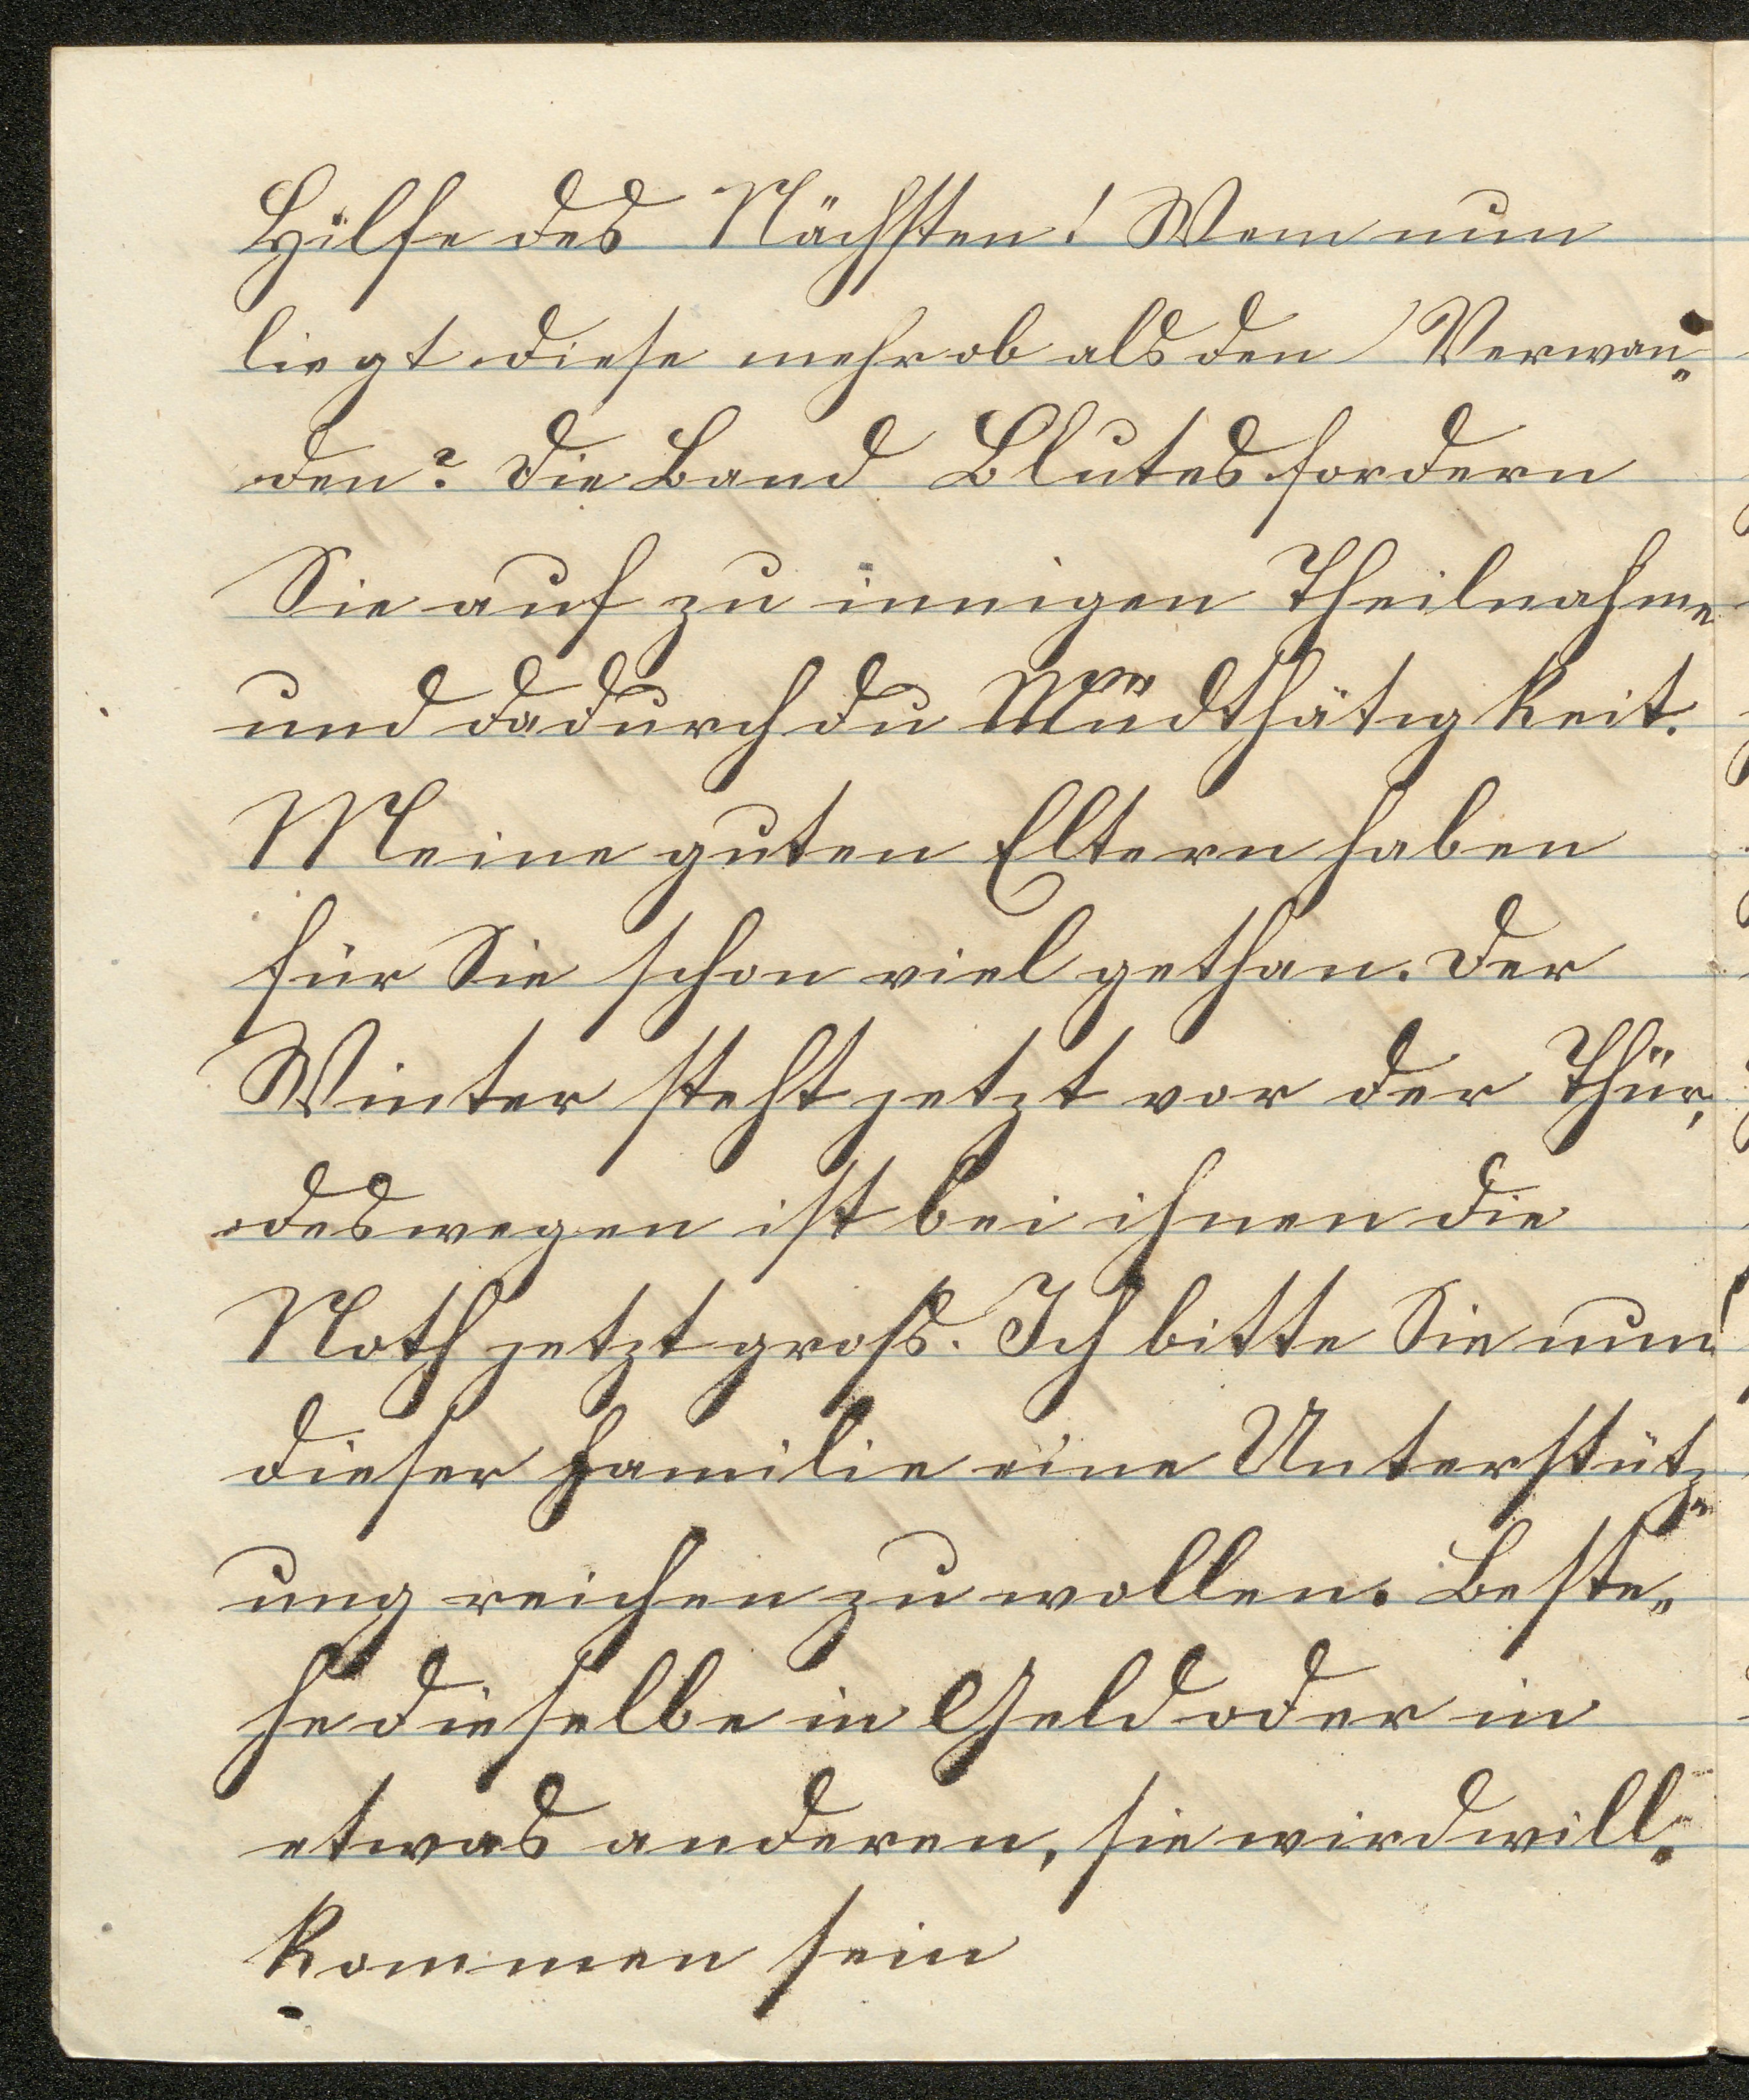 Hilfe des Nächsten! Wem nun
liegt diese mehr ob als den Verwan„
den? Die Band Blutes fordern
Sie auf zu innigen Theilnahme
und dadurch du Mildthätigkeit.
Meine guten Eltern haben
für Sie schon viel gethan. Der
Winter steht jetzt vor der Thür,
deswegen ist bei ihnen die
Noth jetzt groß. Ich bitte Sie nun
dieser Familie eine Unterstütz„
ung reichen zu wollen. Beste„
he dieselbe in Geld oder in
etwas anderen, sie wird will„
kommen sein